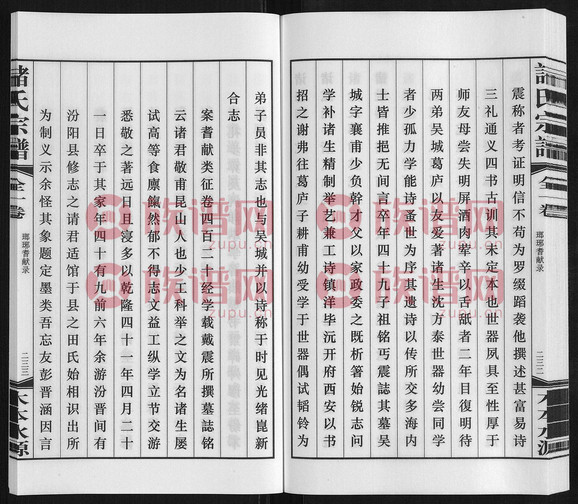 諸氏宗譜
全一卷
瑯琊耆献录
木本水源
震称者考证明信不苟为罗缀蹈袭他撰述甚富易诗
三礼通义四书古训其未定本也世器夙具至性厚于
师友母尝失明屏酒肉荤辛以舌舐者二年目复明待
两弟吴城葛庐以友爱著诸生沉方泰世器幼尝同学
者少孤力学能诗蚤世为序其遗诗以传所交多海内
士皆推挹无间言卒年四十九子祖铭丐震誌其墓吴
城字襄甫少负幹才父以家政委之既析箸始锐志问
学补诸生精制举艺兼工诗镇洋毕沅开府西安以书
招之谢弗往葛庐子耕甫幼受学于世器偶试韬铃为
諸氏宗譜
全一卷
瑯琊耆献录
木本水源
弟子员非其志也与吴城并以诗称于时见光绪崑新
合志
案耆献类征卷四百二十经学载戴震所撰墓誌铭
云诸君敬甫昆山人也少工科举之文为名诸生屡
试高等食廪餼然郁不得志文益工纵学立节交游
悉敬之著远日且寝多以乾隆四十一年四月二十
一日卒于其家年四十有九前六年余游汾晋间有
汾阳县修志之请君适馆于县之田氏始相识出所
为制义示余怪其象题定墨类吾忘友彭晋涵因言
族谱网
zupu.cn
族谱网
zupu.cn
族谱网
zupu.cn
族谱网
zupu.cn